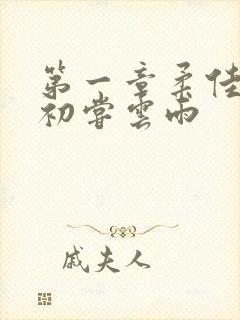 第一章柔佳
初嘗雲雨
戚夫人